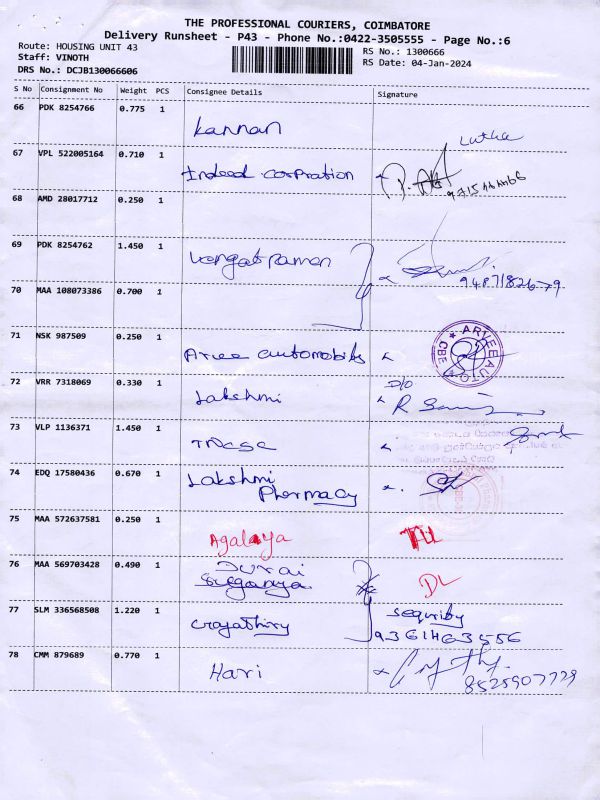 THE PROFESSIONAL COURIERS, COIMBATORE
Delivery Runsheet - P43 - Phone No.:0422-3505555 - Page No.:6
Route: HOUSING UNIT 43
Staff: VINOTH
DRS No.: DCJB130066606
RS No.: 1300666
RS Date: 04-Jan-2024
S No Consignment No Weight PCS Consignee Details Signature
66 PDK 8254766 0.775 1
Kannan
67 VPL 522005164 0.710 1
Indeed corpration
68 AMD 28017712 0.250 1
69 PDK 8254762 1.450 1
Vengat Raman
9487182679
70 MAA 108073386 0.700 1
71 NSK 987509 0.250 1
Arvee automobils
ARVEE AUTO CBE
72 VRR 7318069 0.330 1
Lakshmi
D/O
73 VLP 1136371 1.450 1
74 EDQ 17580436 0.670 1
Lakshmi
Phermacy
75 MAA 572637581 0.250 1
Agalaya
76 MAA 569703428 0.490 1
Durai
DL
77 SLM 336568508 1.220 1
sequriby
9361463556
78 CMM 879689 0.770 1
Hari
8525907729